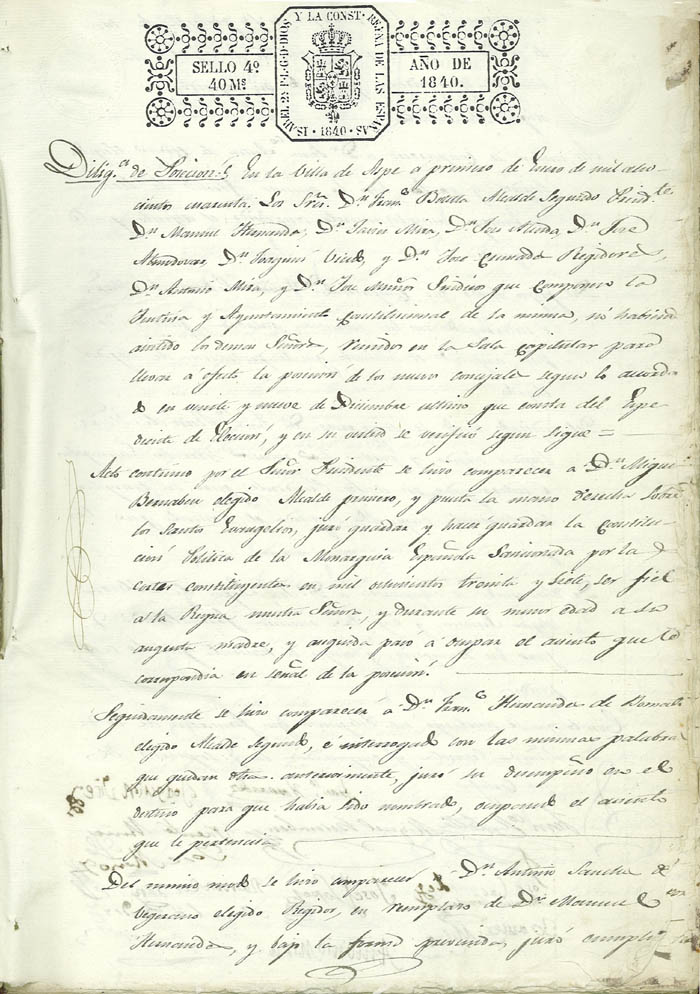 ISABEL 2ª P.L.G.D.DIOS Y LA CONST. REINA DE LAS ESPAÑAS · 1840 ·
SELLO 4º
40 Ms
AÑO DE
1840.
Diligª de Posicion. En la Villa de Aspe a primero de Enero de mil ocho
cientos cuarenta. Los Sres. Dn Franco Botella Alcalde Segundo Presidte
Dn Manuel Hernandez, Dn Javier Mira, Dn Jose Alcada, Dn Jose
Almodovar, Dn Joaquin Vives, y Dn Jose Cremades Regidores,
Dn Antonio Mira, y Dn Jose Muños Sindicos que componen la
Justicia y Ayuntamiento Constitucional de la misma, no habiendo
asistido los demas Señores, reunidos en la Sala capitular para
llevar a efecto la posicion de los nuevos concejales segun lo acorda
do en veinte y nueve de Diciembre ultimo que consta del Espe
diente de Eleccion, y en su virtud se verificó segun sigue =
Acto continuo por el Señor Presidente se hizo comparecer a Dn Miguel
Bernabeu elegido Alcalde primero, y puesta la mano derecha sobre
los Santos Evangelios, juró guardar y hacer guardar la Constitu
cion Politica de la Monarquia Española Sancionada por las
cortes constituyentes en mil ochocientos treinta y siete, ser fiel
a la Reyna nuestra Señora, y durante su menor edad a su
augusta madre, y enseguida pasó a ocupar el asiento que le
correspondia en señal de la posicion.
Seguidamente se hizo comparecer á Dn Franco Hernandez de Bernabe
elegido Alcalde Segundo, é interrogado con las mismas palabras
que quedan dichas anteriormente, juró su desempeño en el
destino para que habia sido nombrado, ocupando el asiento
que le pertenecia
Del mismo modo se hizo comparecer a Dn Antonio Sanchez de
elegido Regidor, en remplazo de Dn Manuel
Hernandez, y bajo la forma prevenida, juró cumplir